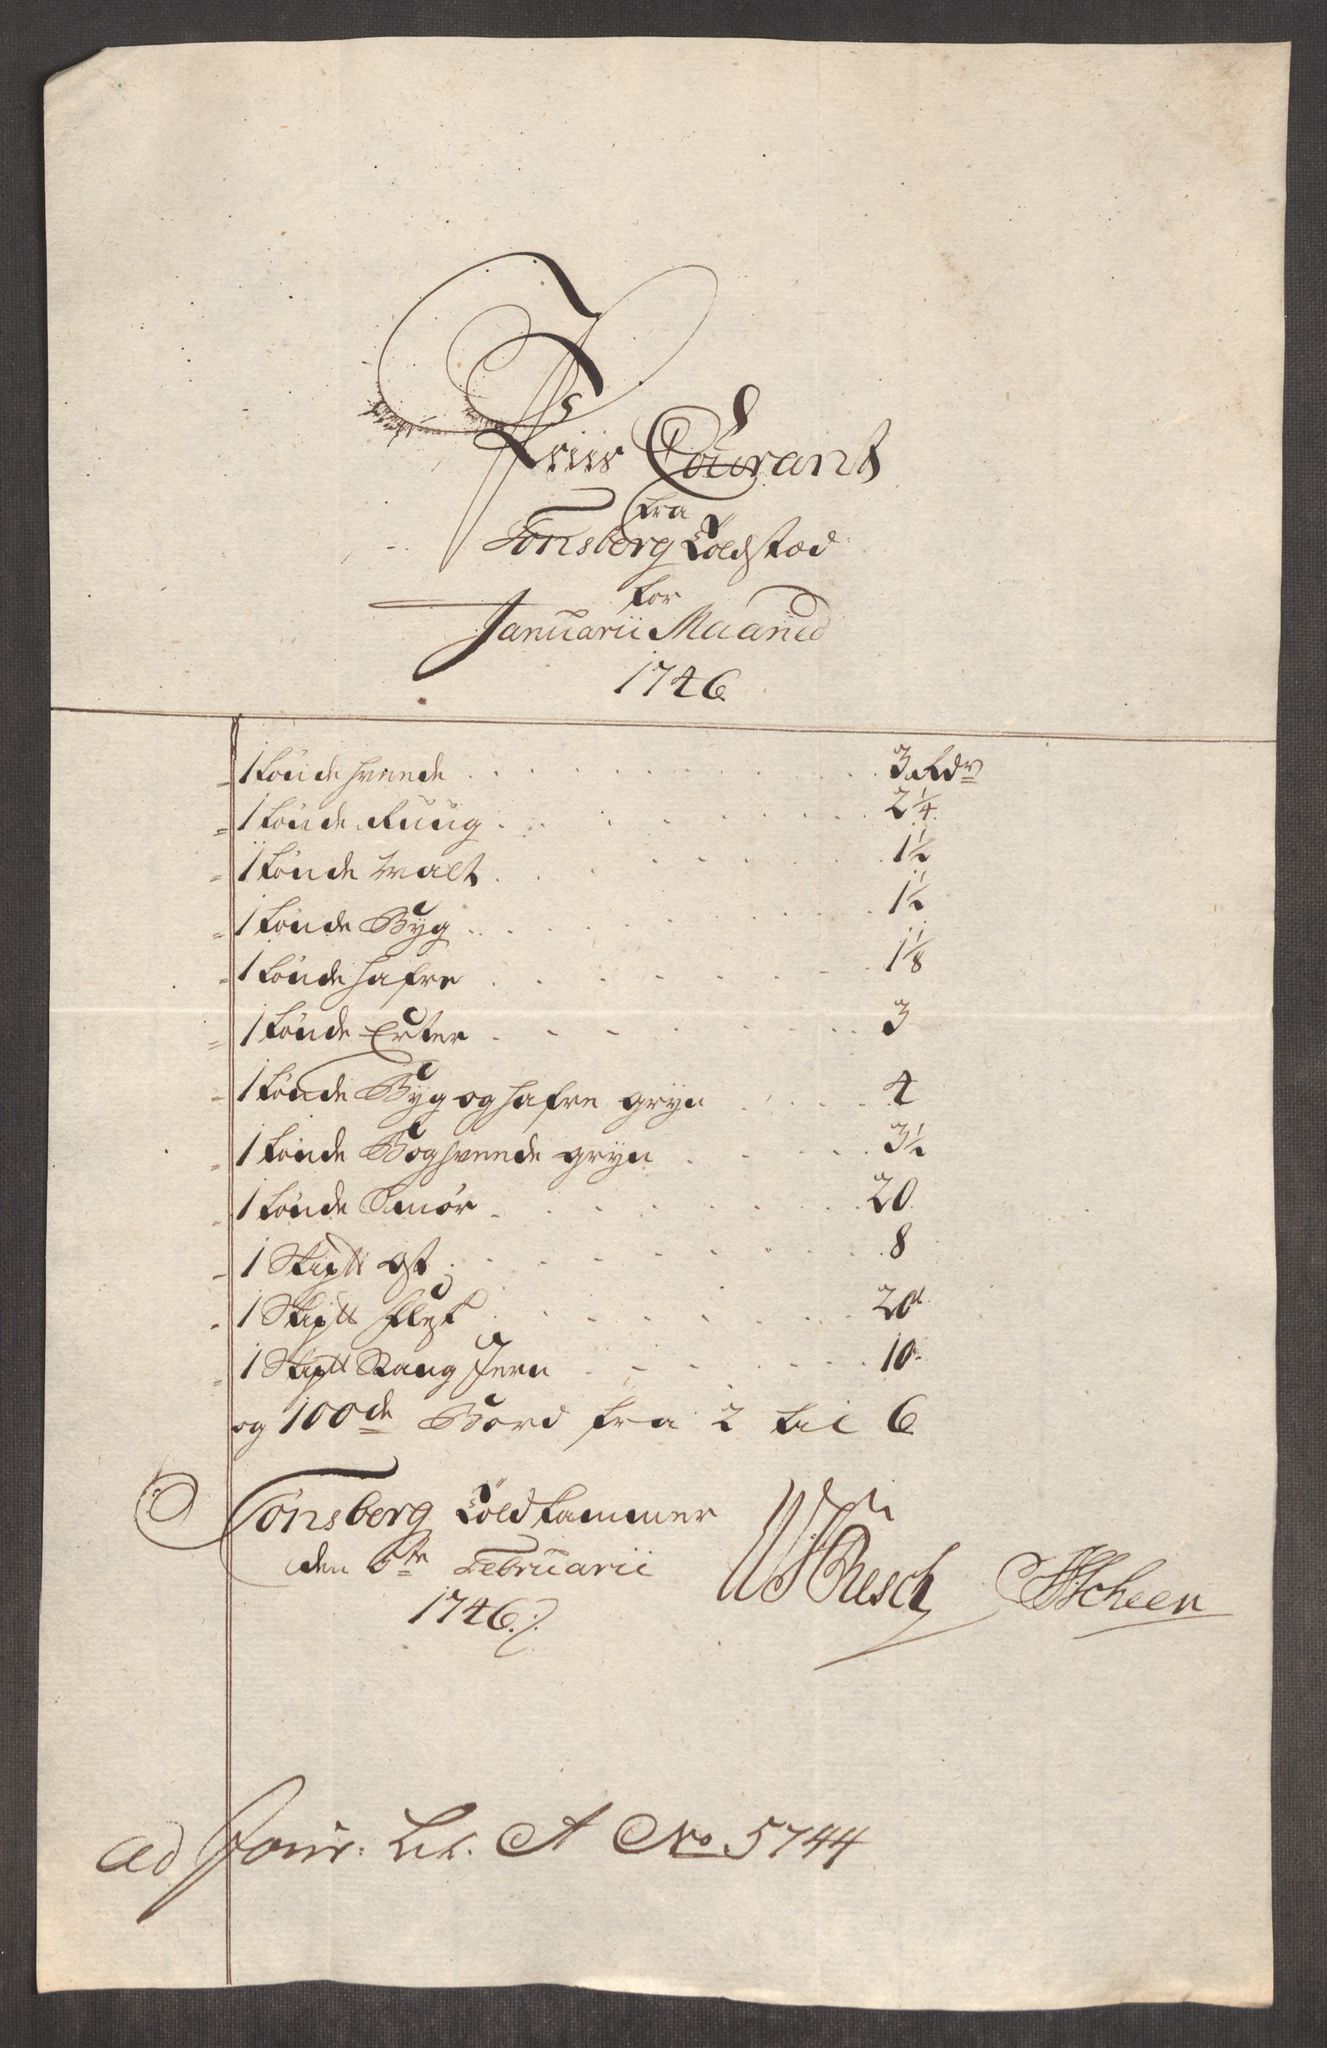 Priis Courant
fra
Tönsberg Toldstæd
for
Januarii Maaned
1746
1 tønde hveede 3 Rdr
1 tønde Ruug 2 1/4
1 tønde Malt 1 1/2
1 tønde Byg 1 1/2
1 tønde hafre 1 1/8
1 tønde Erter 3
1 tønde Byg og hafre gryn 4
1 tønde Boghveede gryn 3 1/2
1 tønde Smör 20
1 Skiptt Ost 8
1 Skiptt flesk 20
1 Skiptt Stang Jern 10
og 100de Bord fra 2 til 6
Tönsberg Toldkammer
den 6te Februarii
1746
Resch Scheen
ad Jour: Lit. A No 5744